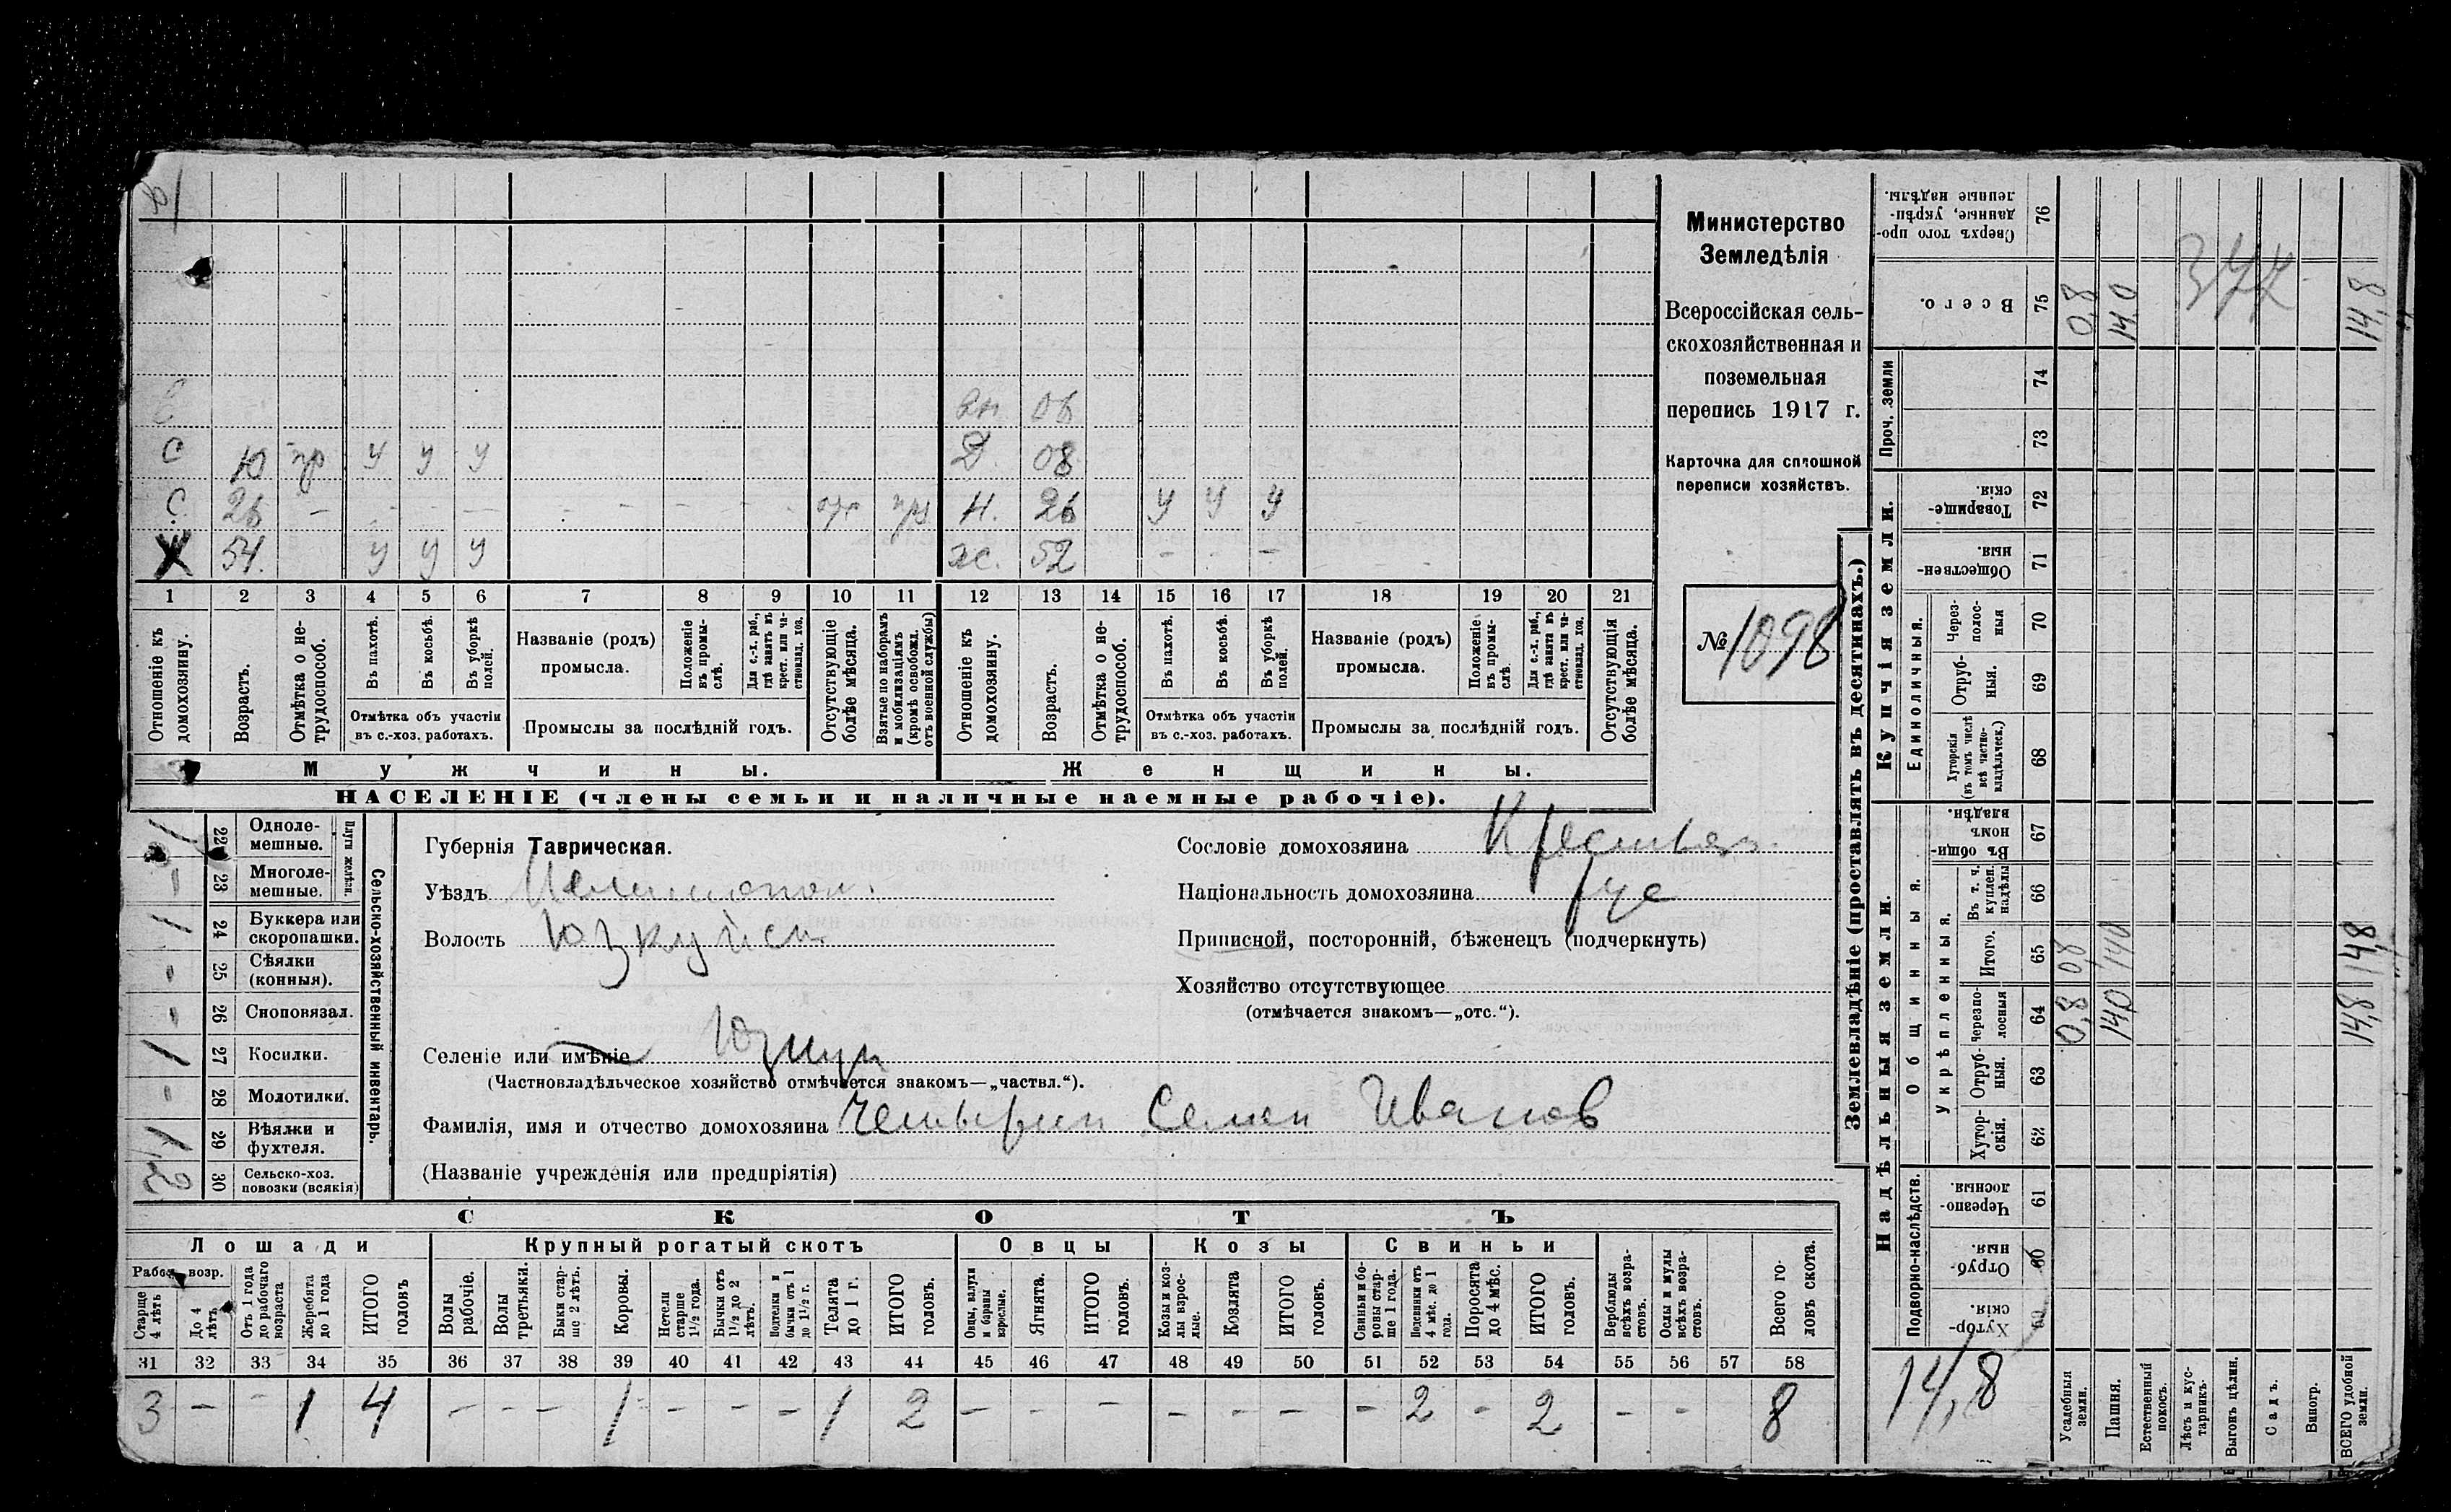 Министерство
Земледѣлія
Всероссійская сель-
скохозяйственная и
поземельная
перепись 1917 г.
Карточка для сплошной
переписи хозяйствъ.
№ 1098
вн. 06
С 10 пр у у у Д. 08
С 26 – – – – – – – – отс Н. 26 у у у
Х 54. у у у ж. 52 – – –
1 2 3 4 5 6 7 8 9 10 11 12 13 14 15 16 17 18 19 20 21
Отношеніе къ домохозяину.
Возрастъ.
Отмѣтка о не-трудоспособ.
Въ пахотѣ.
Въ косьбѣ.
Въ уборкѣ полей.
Отмѣтка объ участіи
въ с.-хоз. работахъ.
Названіе (родъ)
промысла.
Положеніе въ промы-слѣ.
Для с.-х. раб., гдѣ занятъ въ крест. или ча-стновлад. хоз.
Промыслы за послѣдній годъ.
Отсутствующіе болѣе мѣсяца.
Взятые по наборамъ и мобилизаціямъ (кромѣ освобожд. отъ военной службы)
Отношеніе къ домохозяину.
Возрастъ.
Отмѣтка о не-трудоспособ.
Въ пахотѣ.
Въ косьбѣ.
Въ уборкѣ полей.
Отмѣтка объ участіи
въ с.-хоз. работахъ.
Названіе (родъ)
промысла.
Положеніе въ промы-слѣ.
Для с.-х. раб., гдѣ занята въ крест. или ча-стновлад. хоз.
Промыслы за послѣдній годъ.
Отсутствующія болѣе мѣсяца.
Мужчины. Женщины.
НАСЕЛЕНІЕ (члены семьи и наличные наемные рабочіе).
Сельско-хозяйственный инвентарь.
Плуги желѣзн.
1 22 Одноле-мешные.
– 23 Многоле-мешные.
1 24 Буккера или скоропашки.
- 25 Сѣялки (конныя).
- 26 Сноповязал.
1 27 Косилки.
- 28 Молотилки.
1 29 Вѣялки и фухтеля.
2 30 Сельско-хоз. повозки (всякія)
Губернія Таврическая.
Уѣздъ Мелитопол.
Волость Юзкуйск.
Селеніе или имѣніе Юзкуи
(Частновладѣльческое хозяйство отмѣчается знакомъ—„частвл.“).
Фамилія, имя и отчество домохозяина Четырин Семен Иванов
(Названіе учрежденія или предпріятія)
Сословіе домохозяина Крестьян.
Національность домохозяина рус
Приписной, посторонній, бѣженецъ (подчеркнуть)
Хозяйство отсутствующее
(отмѣчается знакомъ—„отс.“).
СКОТЪ
Лошади Крупный рогатый скотъ Овцы Козы Свиньи
Рабоч. возр.
Старше 4 лѣтъ
До 4 лѣтъ
Отъ 1 года до рабочаго возраста
Жеребята до 1 года
ИТОГО головъ
Волы рабочіе.
Волы третьяки.
Быки стар-ше 2 лѣтъ.
Коровы.
Нетели старше 1½ года.
Бычки отъ 1½ до 2 лѣтъ.
Подтелки и бычки отъ 1 до 1½ г.
Телята до 1 г.
ИТОГО головъ.
Овцы, валухи и бараны взрослые.
Ягнята.
ИТОГО головъ.
Козы и коз-лы взрос-лые.
Козлята
ИТОГО головъ.
Свиньи и бо-ровы стар-ше 1 года.
Подсвинки отъ 4 мѣс. до 1 года.
Поросята до 4 мѣс.
ИТОГО головъ.
Верблюды всѣхъ возра-стовъ.
Ослы и мулы всѣхъ возра-стовъ.
Всего го-ловъ скота.
31 32 33 34 35 36 37 38 39 40 41 42 43 44 45 46 47 48 49 50 51 52 53 54 55 56 57 58
3 – – 1 4 – – – 1 – – – 1 2 – – – – – – – 2 – 2 – – 8
Землевладѣніе (проставлять въ десятинахъ.)
Купчія земли.
Надѣльныя земли.
Сверхъ того про-данные, укрѣп-ленные надѣлы. 76
Всего. 75 0,8 14,0 14,8
377
Проч. земли 74 73
Товарище-скія. 72
Обществен-ныя. 71
Единоличныя.
Через-полос-ныя 70
Отруб-ныя. 69
Хуторскія (въ томъ числѣ всѣ частно-владѣльческ.) 68
Общинныя.
Въ общин-номъ владѣн. 67
Укрѣпленныя.
Въ т. ч. куплен. надѣлы 66
Итого. 65 0,8 14,0 14,8
Черезпо-лосныя 64 0,8 14,0 14,8
Отруб-ныя. 63
Хутор-скія. 62
Подворно-наслѣдств.
Черезпо-лосныя. 61
Отруб-ныя. 60
Хутор-скія. 59
14,8
Усадебныя земли.
Пашня.
Естественный покосъ.
Лѣсъ и кус-тарникъ.
Выгонъ цѣлин.
Садъ.
Виногр.
ВСЕГО удобной земли.